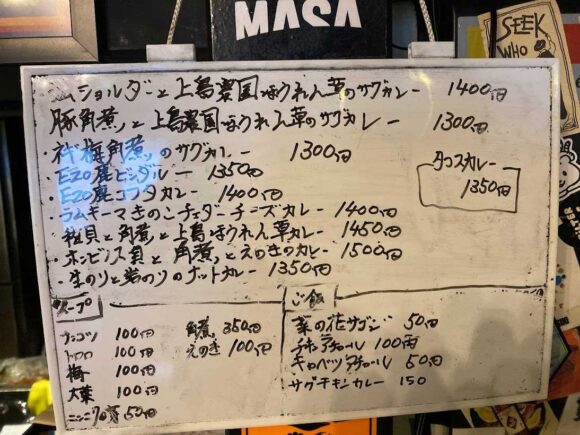 MASA
SEEK
WHO
ラムショルダーと上島農園ほうれん草のサグカレー 1400円
豚角煮と上島農園ほうれん草のサグカレー 1300円
梅角煮のサグカレー 1300円
・EZO鹿ビンダルー 1350円
・EZO鹿コフタカレー 1400円
・ラムキーマきのこチェダーチーズカレー 1400円
・粒貝と角煮と上島ほうれん草カレー 1450円
・ホンビノス貝と角煮とえのきのカレー 1500円
・生のりと岩のりのナットカレー 1350円
タコスカレー
1350円
スープ
ナンコツ 100円
トロロ 100円
梅 100円
大葉 100円
ニンニク 50円
角煮 350円
えのき 100円
ご飯
菜の花サブジ 50円
チキンアチャール 100円
キャベツアチャール 50円
サグチキンカレー 150